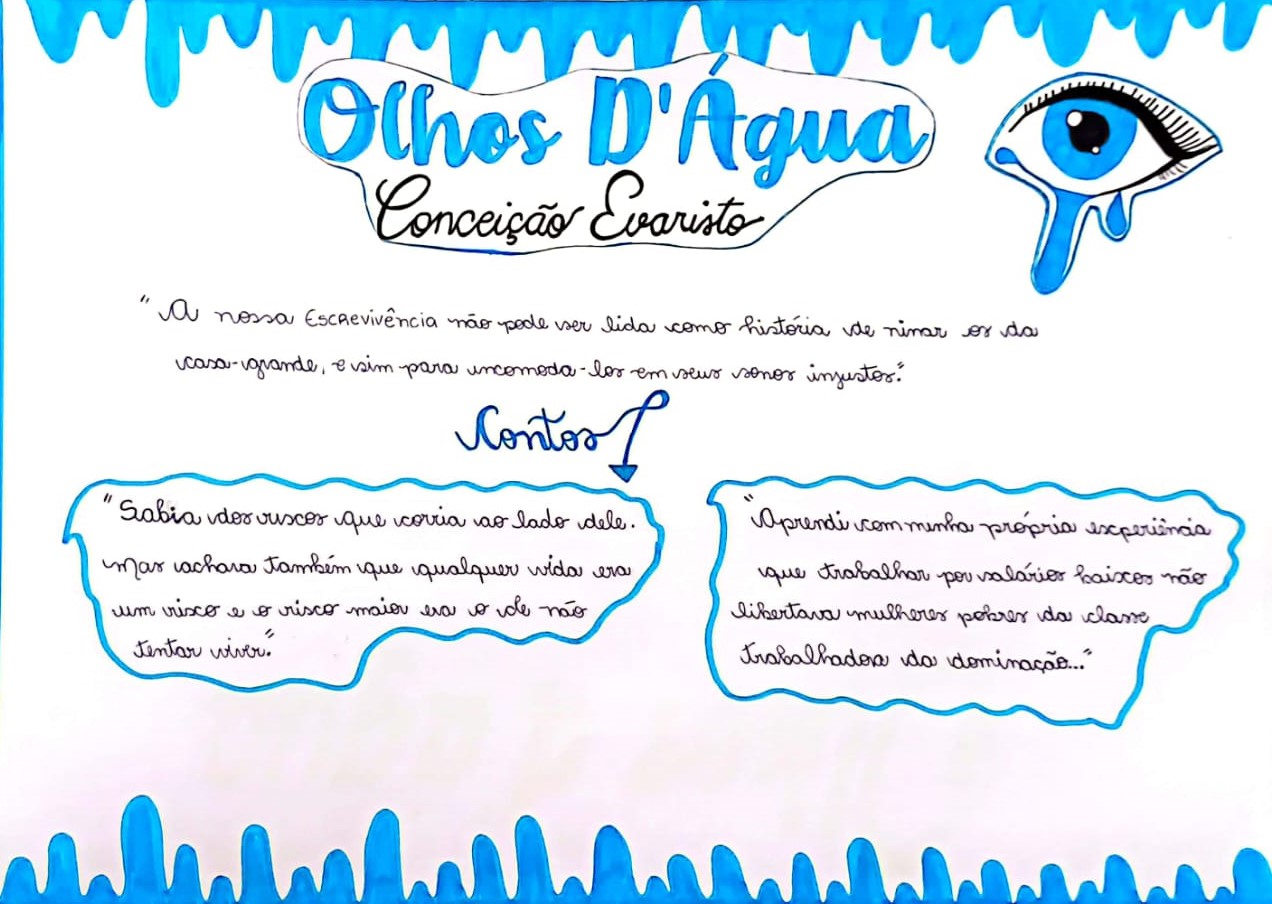 Olhos D'Água
Conceição Evaristo
"A nossa Escrevivência não pode ser lida como história de ninar os da
casa-grande, e sim para incomoda-los em seus sonos injustos."
Contos
"Sabia dos riscos que corria ao lado dele.
Mas achava também que qualquer vida era
um risco e o risco maior era o de não
tentar viver."
"Aprendi com minha própria experiência
que trabalhar por salários baixos não
libertava mulheres pobres da classe
trabalhadora da dominação..."